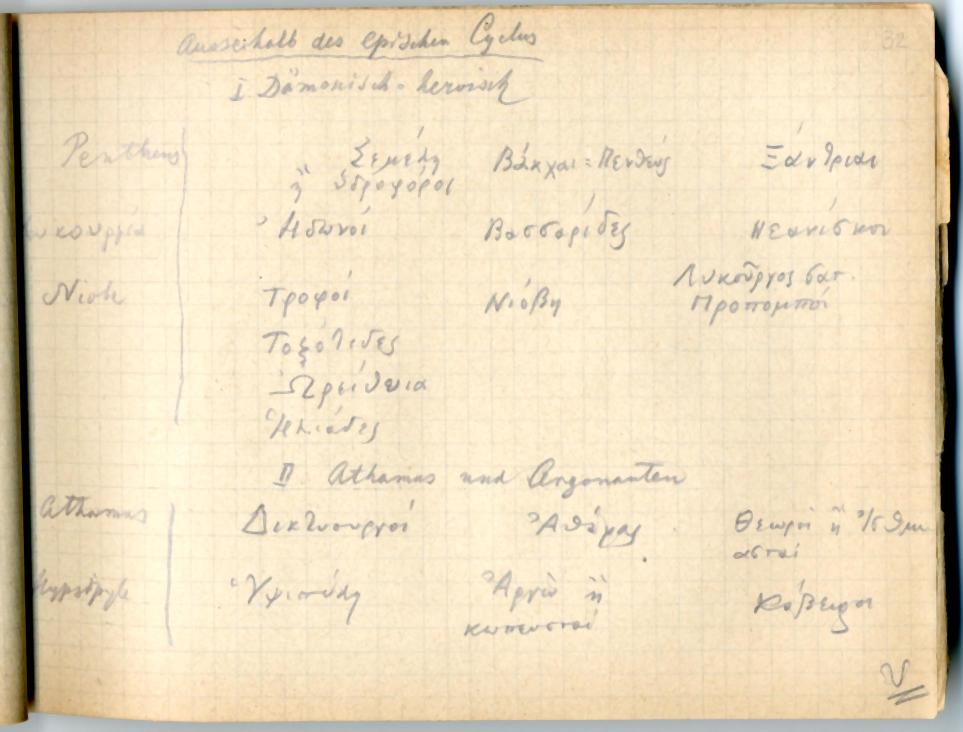 32
Ausserhalb des epischen Cyclus
I Dämonisch-heroisch
Pentheus Σεμέλη Βάκχαι = Πενθεύς Ξάντριαι
ἢ Ὑδροφόροι
Λυκουργία Ἠδωνοί Βασσαρίδες Νεανίσκοι
Λυκοῦργος σατ.
Niobe Τροφοί Νιόβη Προπομποί
Τοξότιδες
Ὠρείθυια
Ἡλιάδες
II Athamas und Argonauten
Athamas Δικτυουργοί Ἀθάμας Θεωροὶ ἢ Ἰσθμι
ασταί
Hypsipyle Ὑψιπύλη Ἀργὼ ἢ Κάβειροι
κωπευσταί